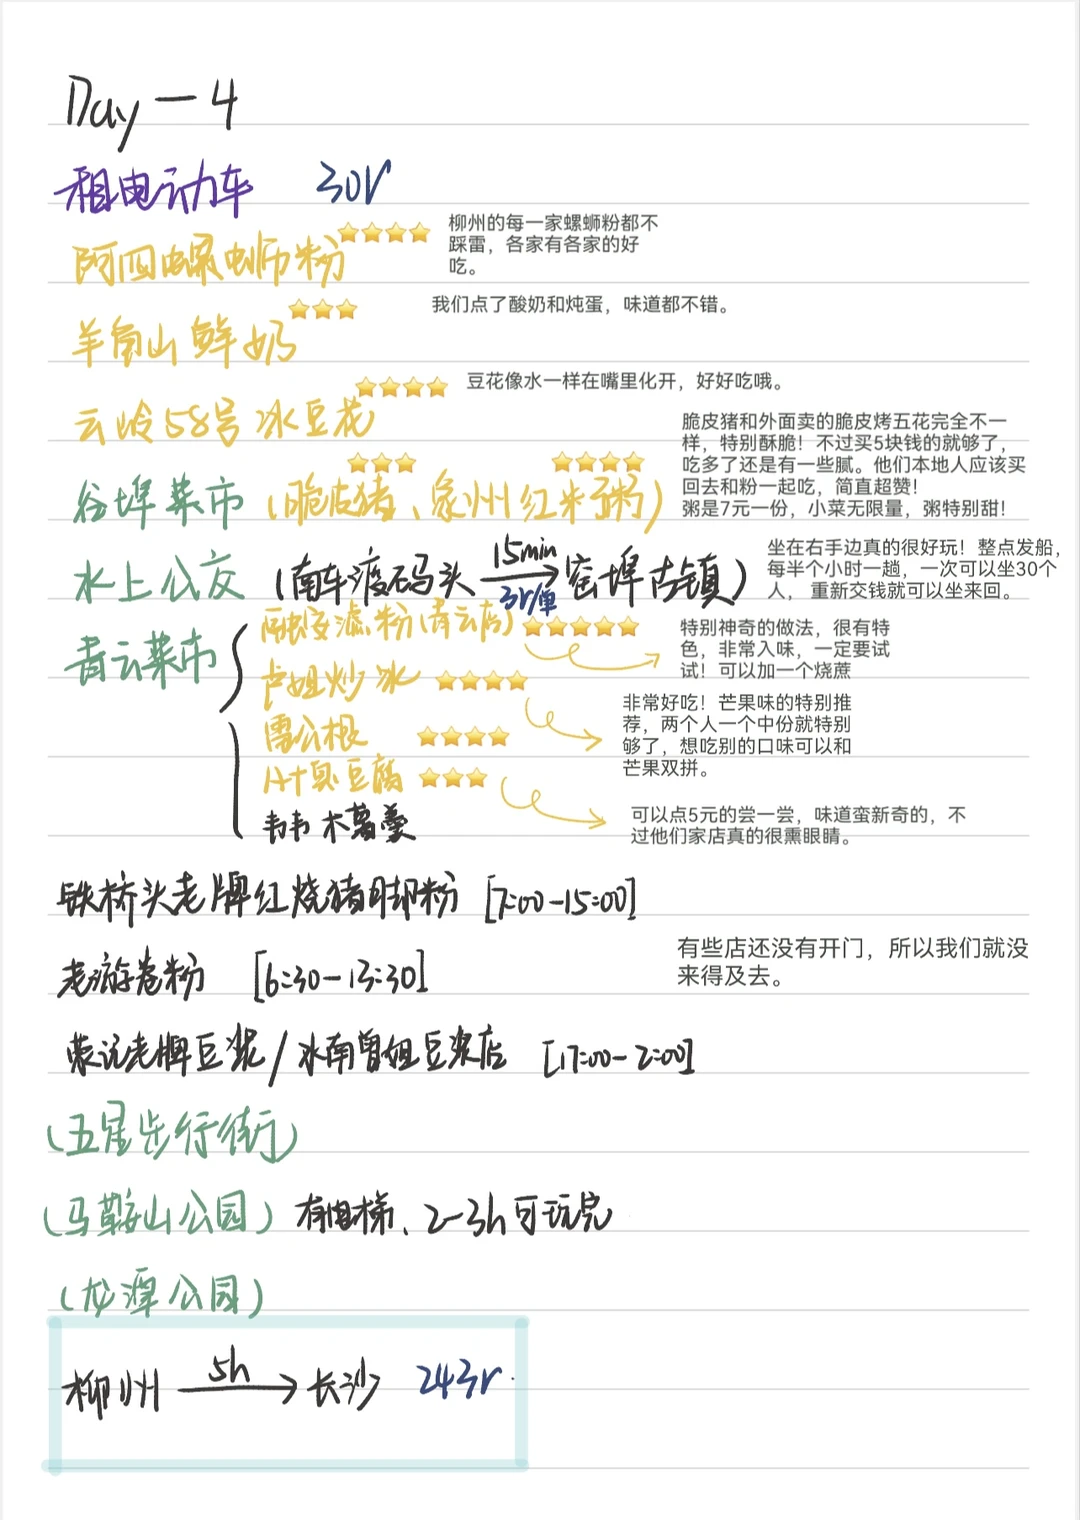 Day-4
租电动车 30r
阿四螺蛳粉 ⭐⭐⭐⭐
柳州的每一家螺蛳粉都不
踩雷，各家有各家的好
吃。
羊角山鲜奶 ⭐⭐⭐
我们点了酸奶和炖蛋，味道都不错。
云岭58号冰豆花 ⭐⭐⭐⭐
豆花像水一样在嘴里化开，好好吃哦。
谷埠菜市（脆皮猪、泉州红米粥） ⭐⭐⭐ ⭐⭐⭐⭐
脆皮猪和外面卖的脆皮烤五花完全不一
样，特别酥脆！不过买5块钱的就够了，
吃多了还是有一些腻。他们本地人应该买
回去和粉一起吃，简直超赞！
粥是7元一份，小菜无限量，粥特别甜！
水上公交（南车渡码头 15min 3r/单 窑埠古镇）
坐在右手边真的很好玩！整点发船，
每半个小时一趟，一次可以坐30个
人， 重新交钱就可以坐来回。
青云菜市
融安滤粉（青云店） ⭐⭐⭐⭐⭐
特别神奇的做法，很有特
色，非常入味，一定要试
试！可以加一个烧蔗
卢姐炒冰 ⭐⭐⭐⭐
非常好吃！芒果味的特别推
荐，两个人一个中份就特别
够了，想吃别的口味可以和
芒果双拼。
雷公根 ⭐⭐⭐⭐
臭豆腐 ⭐⭐⭐
可以点5元的尝一尝，味道蛮新奇的，不
过他们家店真的很熏眼睛。
韦韦木薯羹
铁桥头老牌红烧猪脚粉 [7:00-15:00]
老游卷粉 [6:30-13:30]
有些店还没有开门，所以我们就没
来得及去。
老牌豆浆/水南曾姐豆浆店 [17:00-2:00]
（五星步行街）
（马鞍山公园）有电梯、2-3h可玩完
（龙潭公园）
柳州 5h 长沙 243r